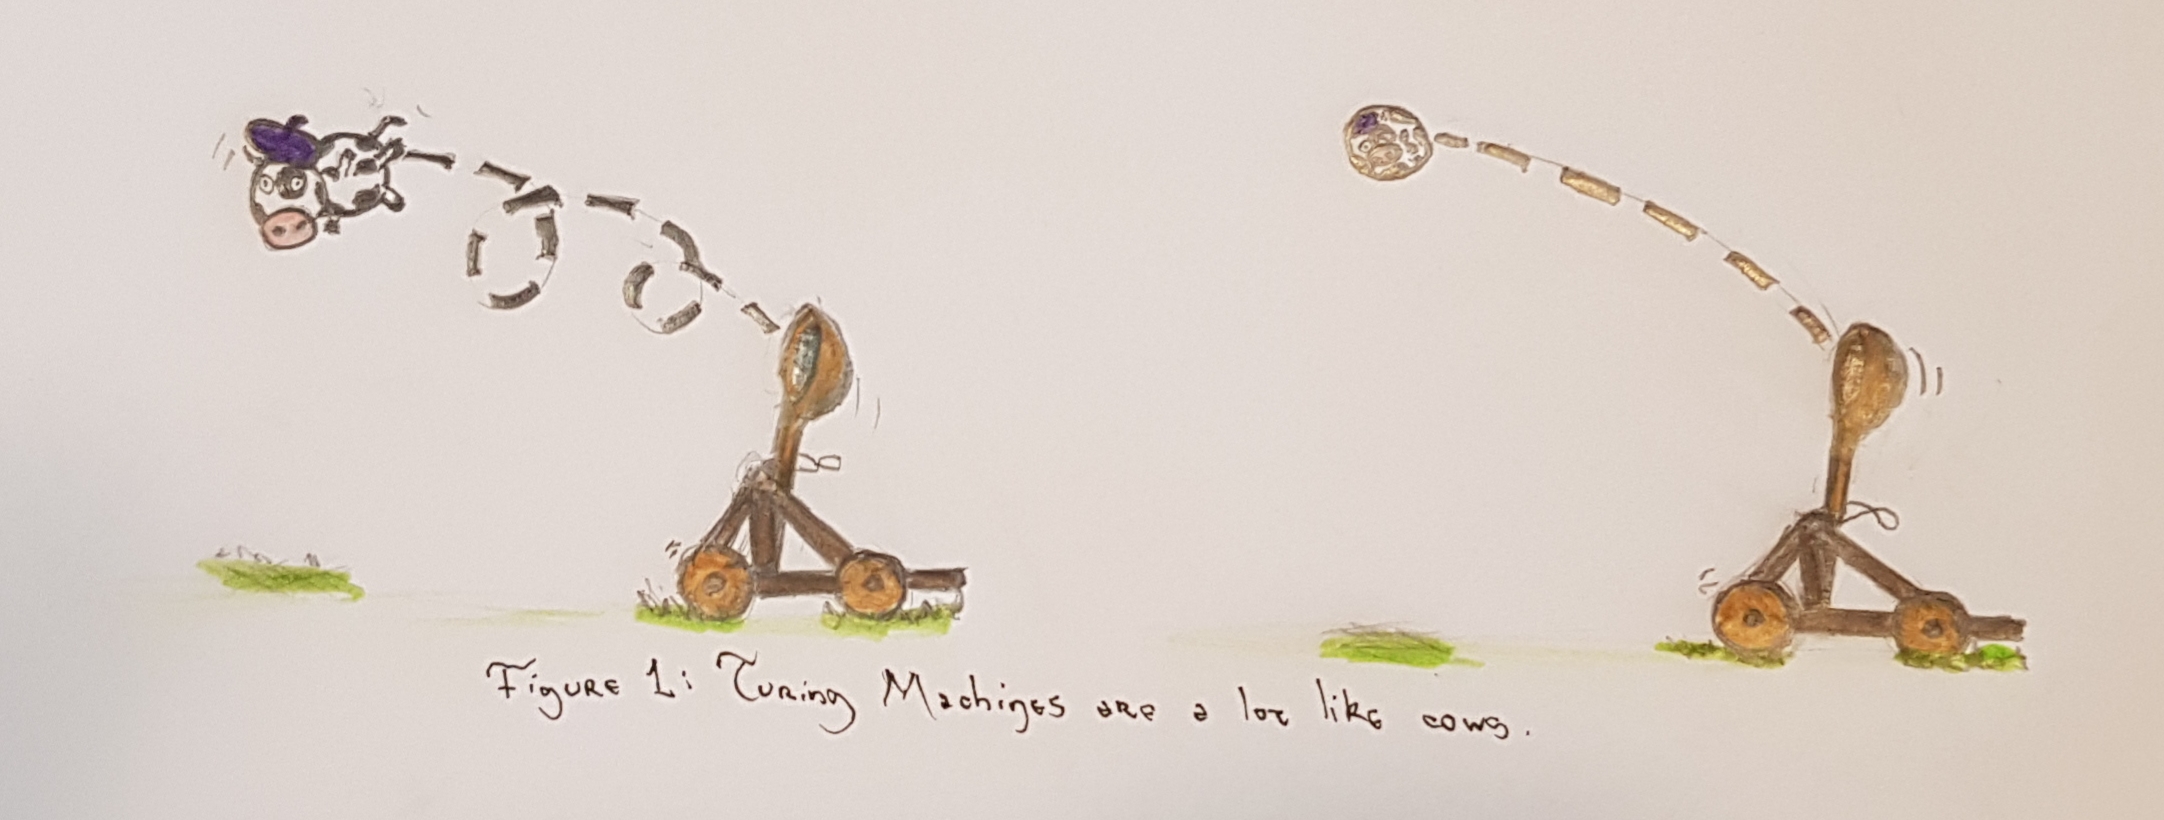 Figure 1: Turing Machines are a lot like cows.